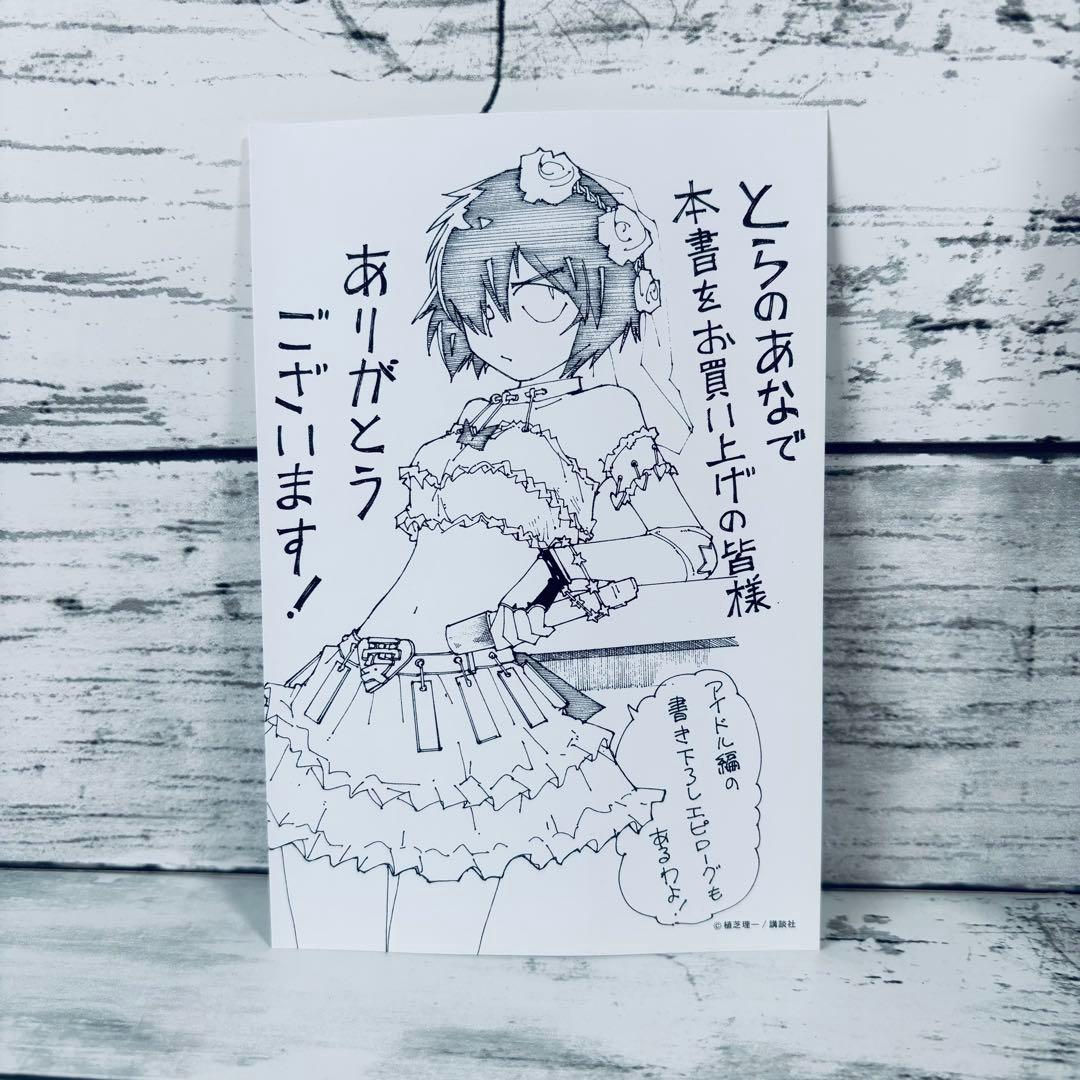 とらのあなで
本書をお買い上げの皆様
ありがとう
ございます！
愛
アイドル編の
書き下ろしエピローグも
あるわよ！
©植芝理一/講談社